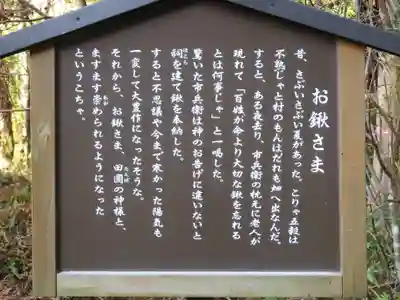 お鍬さま
昔、さぶいさぶい夏があった。こりゃ五穀は
不熟じゃと村のもんはだれも畑へ出なんだ。
すると、ある夜去り、市兵衛の枕元に老人が
現れて「百姓が命より大切な鍬を忘れる
とは何事じゃ」と一喝した。
驚いた市兵衛は神のお告げに違いないと
祠を建て鍬を奉納した。
ほこら
すると不思議や今まで寒かった陽気も
一変して大豊作になったそうな。
それから、お鍬さま、田圃の神様と、
たんぼ
ますます崇められるようになった
あが
というこちゃ。